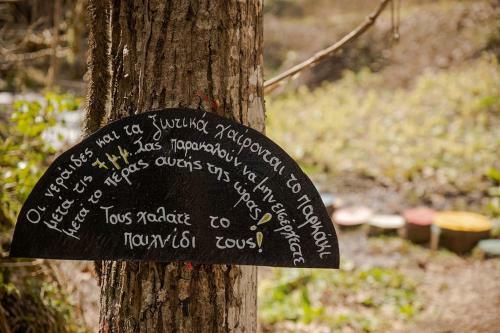 Οι νεράιδες και τα ξωτικά χαίρονται το παρκάκι
μετά τις 7μμ. Σας παρακαλούν να μην εισέρχεστε
μετά το πέρας αυτής της ώρας!
Τους χαλάτε το
παιχνίδι τους!